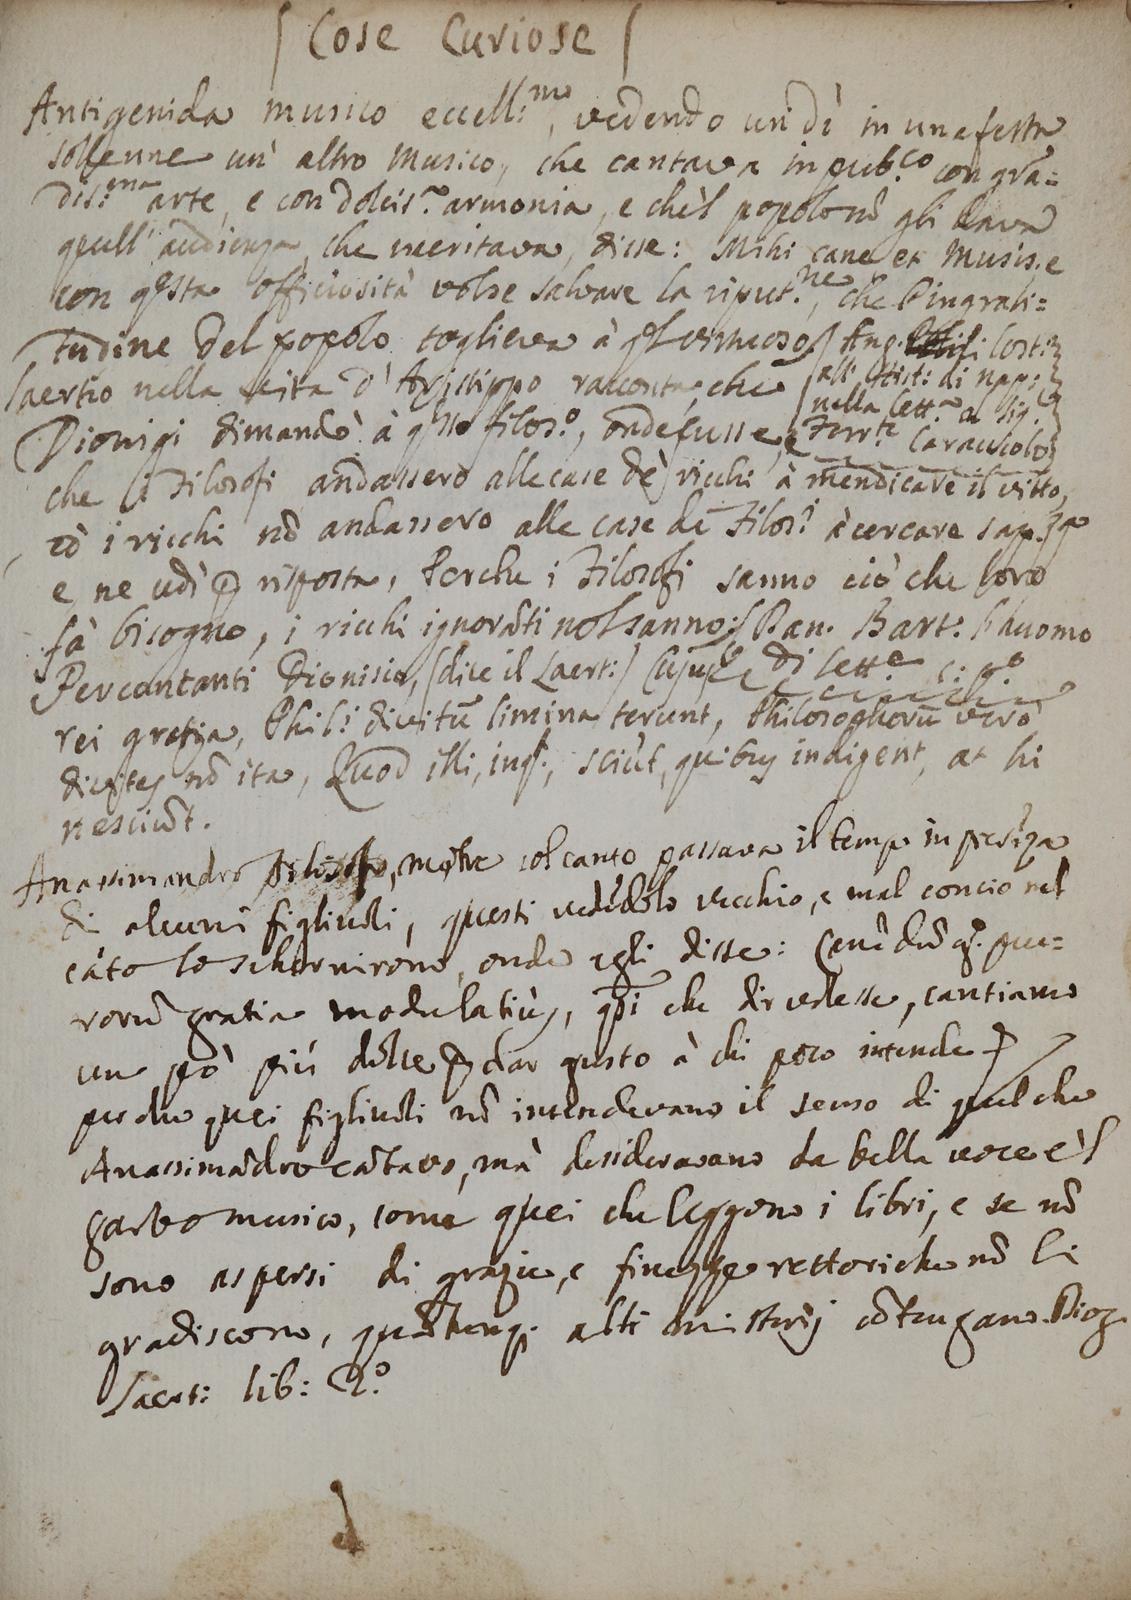 Cose Curiose
Antigenida musico eccell:mo, vedendo un dì in una festa
sollenne un' altro Musico, che cantava in pub.co con gra=
dis:ma arte, e con dolcis.a armonia, e che'l popolo nõ gli dava
quell' audienza, che meritava, disse: Mihi cane et Musis. e
con qsta officiosità volse salvare la riput.ne, che l'ingrati=
tudine del popolo toglieva à ql virtuoso/ Ang. Cost:
all' Hist: di Nap:
nella lett.a al Sig.
Ferr.te Caracciolo
Laertio nella vita d' Aristippo racconta, che
Dionigi dimandò à qsto filos.o, onde fusse,
che i Filosofi andassero alle case de' ricchi à mendicare il vitto,
et i ricchi nõ andassero alle case de' Filos.i à cercare sap.za
e ne udì p risposta, Perche i Filosofi sanno ciò che loro
fà bisogno, i ricchi ignorãti nol sanno:/ Pan. Bart.
di lett.e
Percontanti Dionisio, (dice il Laert:) Cujus
rei gratia, Phil:i divitũ limina terunt, Philosophorũ verò
divites nõ ita, Quod illi, inqt, sciũt, quibus indigent, at hi
nesciũt.
Anassimandro Filosofo, mẽtre col canto passava il tempo in presẽza
di alcuni figliuoli, questi vedẽdolo vecchio, e mal concio nel
cãto lo schernirono, onde egli disse: Canẽdũ q. pue=
rorũ gratia modulatiùs, qsi che dir volesse, cantiamo
un pò più dolce p dar gusto à chi poco intende
perche quei figliuoli nõ intendevano il senso di quel che
Anassimãdro cãtava, mà desideravano la bella voce e'l
garbo musico, come quei che leggono i libri, e se nõ
sono aspersi di grazie, e finezze rettoriche nõ li
gradiscono, quãtunq. alti misterij cõtengano. Diog.
Laert: lib: 2.o